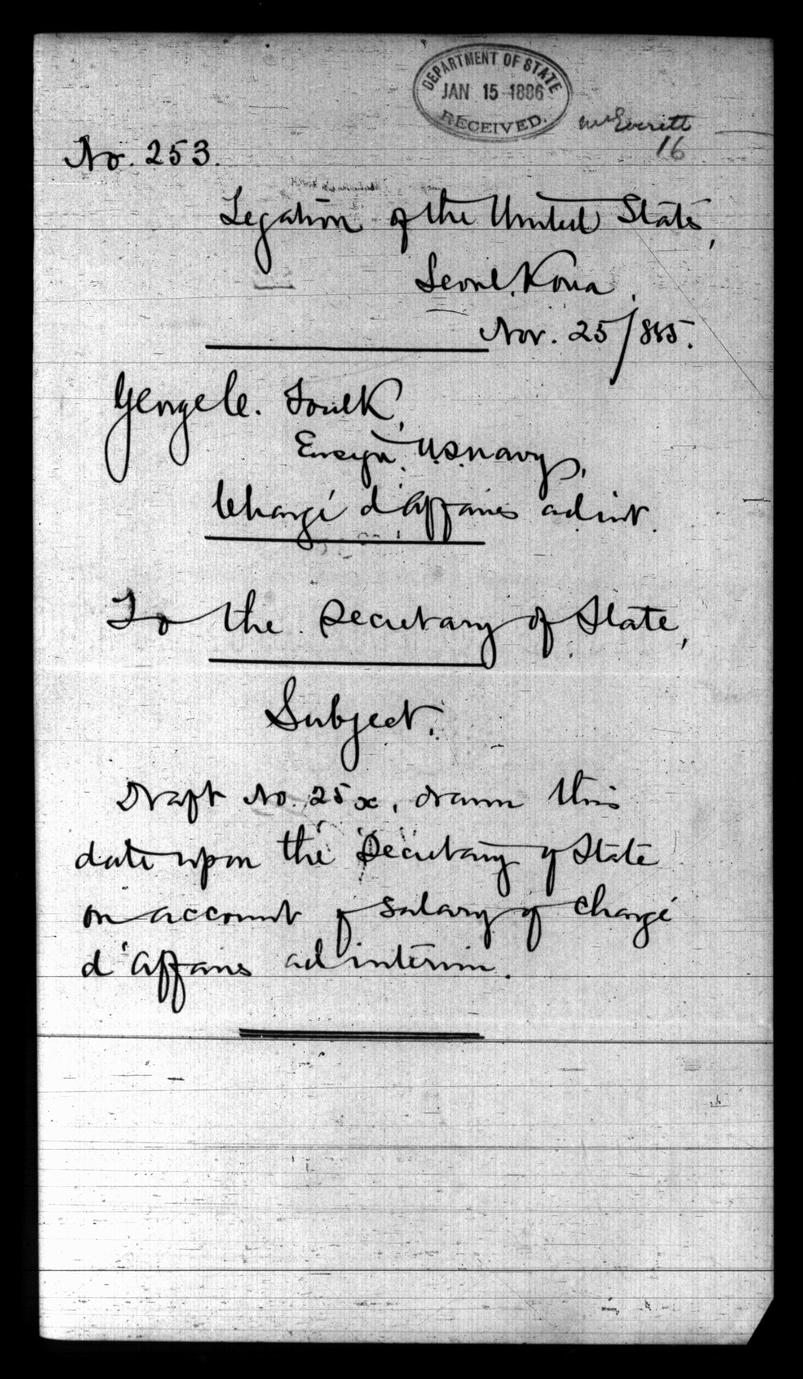 DEPARTMENT OF STATE
JAN 15 1886
RECEIVED.
Mr Everett
16
No. 253.
Legation of the United States,
Seoul, Korea.
Nov. 25/885.
George C. Foulk,
Ensign. U.S. Navy,
Chargé d'Affaires ad int.
To the Secretary of State,
Subject.
Draft No. 25 x, drawn this
date upon the Secretary of State
on account of salary of chargé
d'Affaires ad interim.